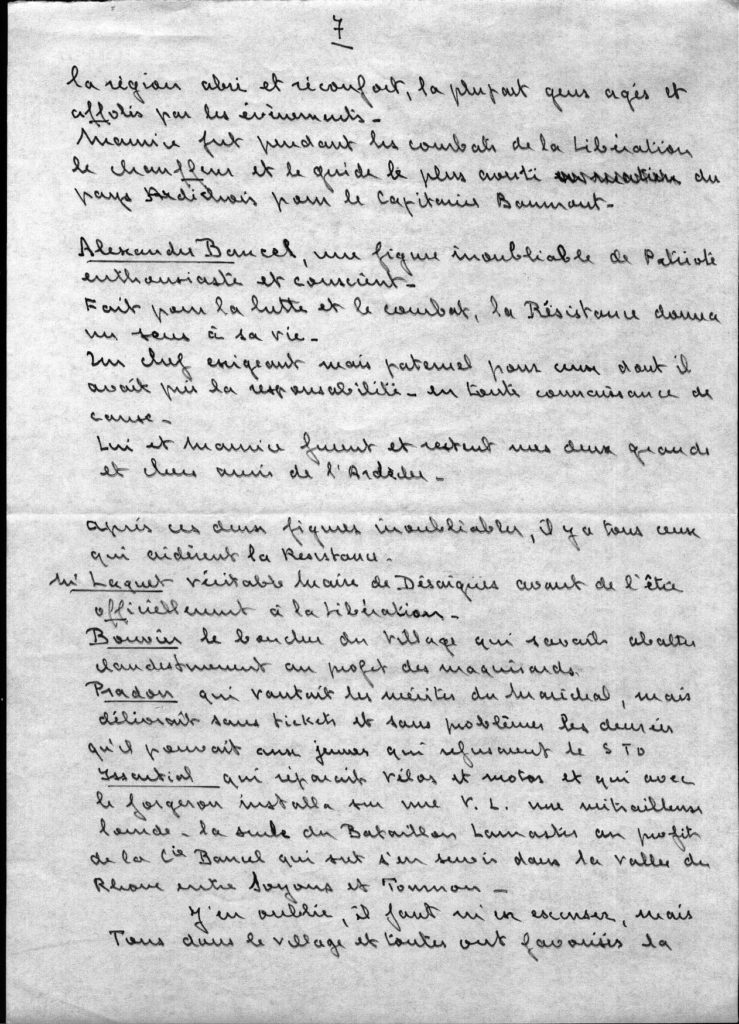 7
la région abri et réconfort, la plupart gens agés et
affolés par les évènements -
Maurice fut pendant les combats de la Libération
le chauffeur et le guide le plus averti du
pays Ardéchois pour le Capitaine Baumont -
Alexandre Bancel, une figure inoubliable de Patriote
enthousiaste et conscient -
Fait pour la lutte et le combat, la Résistance donna
un sens à sa vie -
Un chef exigeant mais paternel pour ceux dont il
avait pris la responsabilité - en toute connaissance de
cause -
Lui et Maurice furent et restent mes deux grands
et chers amis de l'Ardèche -
après ces deux figures inoubliables, il y a tous ceux
qui aidèrent la Résistance -
Mr Laquet véritable Maire de Désaignes avant de l'être
officiellement à la Libération -
Bouvin le boucher du village qui savait abattre
clandestinement au profit des maquisards.
Pradon qui vantait les mérites du Maréchal, mais
délivrait sans tickets et sans problèmes les denrées
qu'il pouvait aux jeunes qui refusaient le STO
Issartial qui réparait vélos et motos et qui avec
le forgeron installa sur une V. L. une mitrailleuse
lourde - la seule du Bataillon Lamastre au profit
de la Cie Bancel qui sut s'en servir dans la vallée du
Rhône entre Soyons et Tournon -
J'en oublie, il faut m'en excuser, mais
Tous dans le village et toutes ont favorisés la